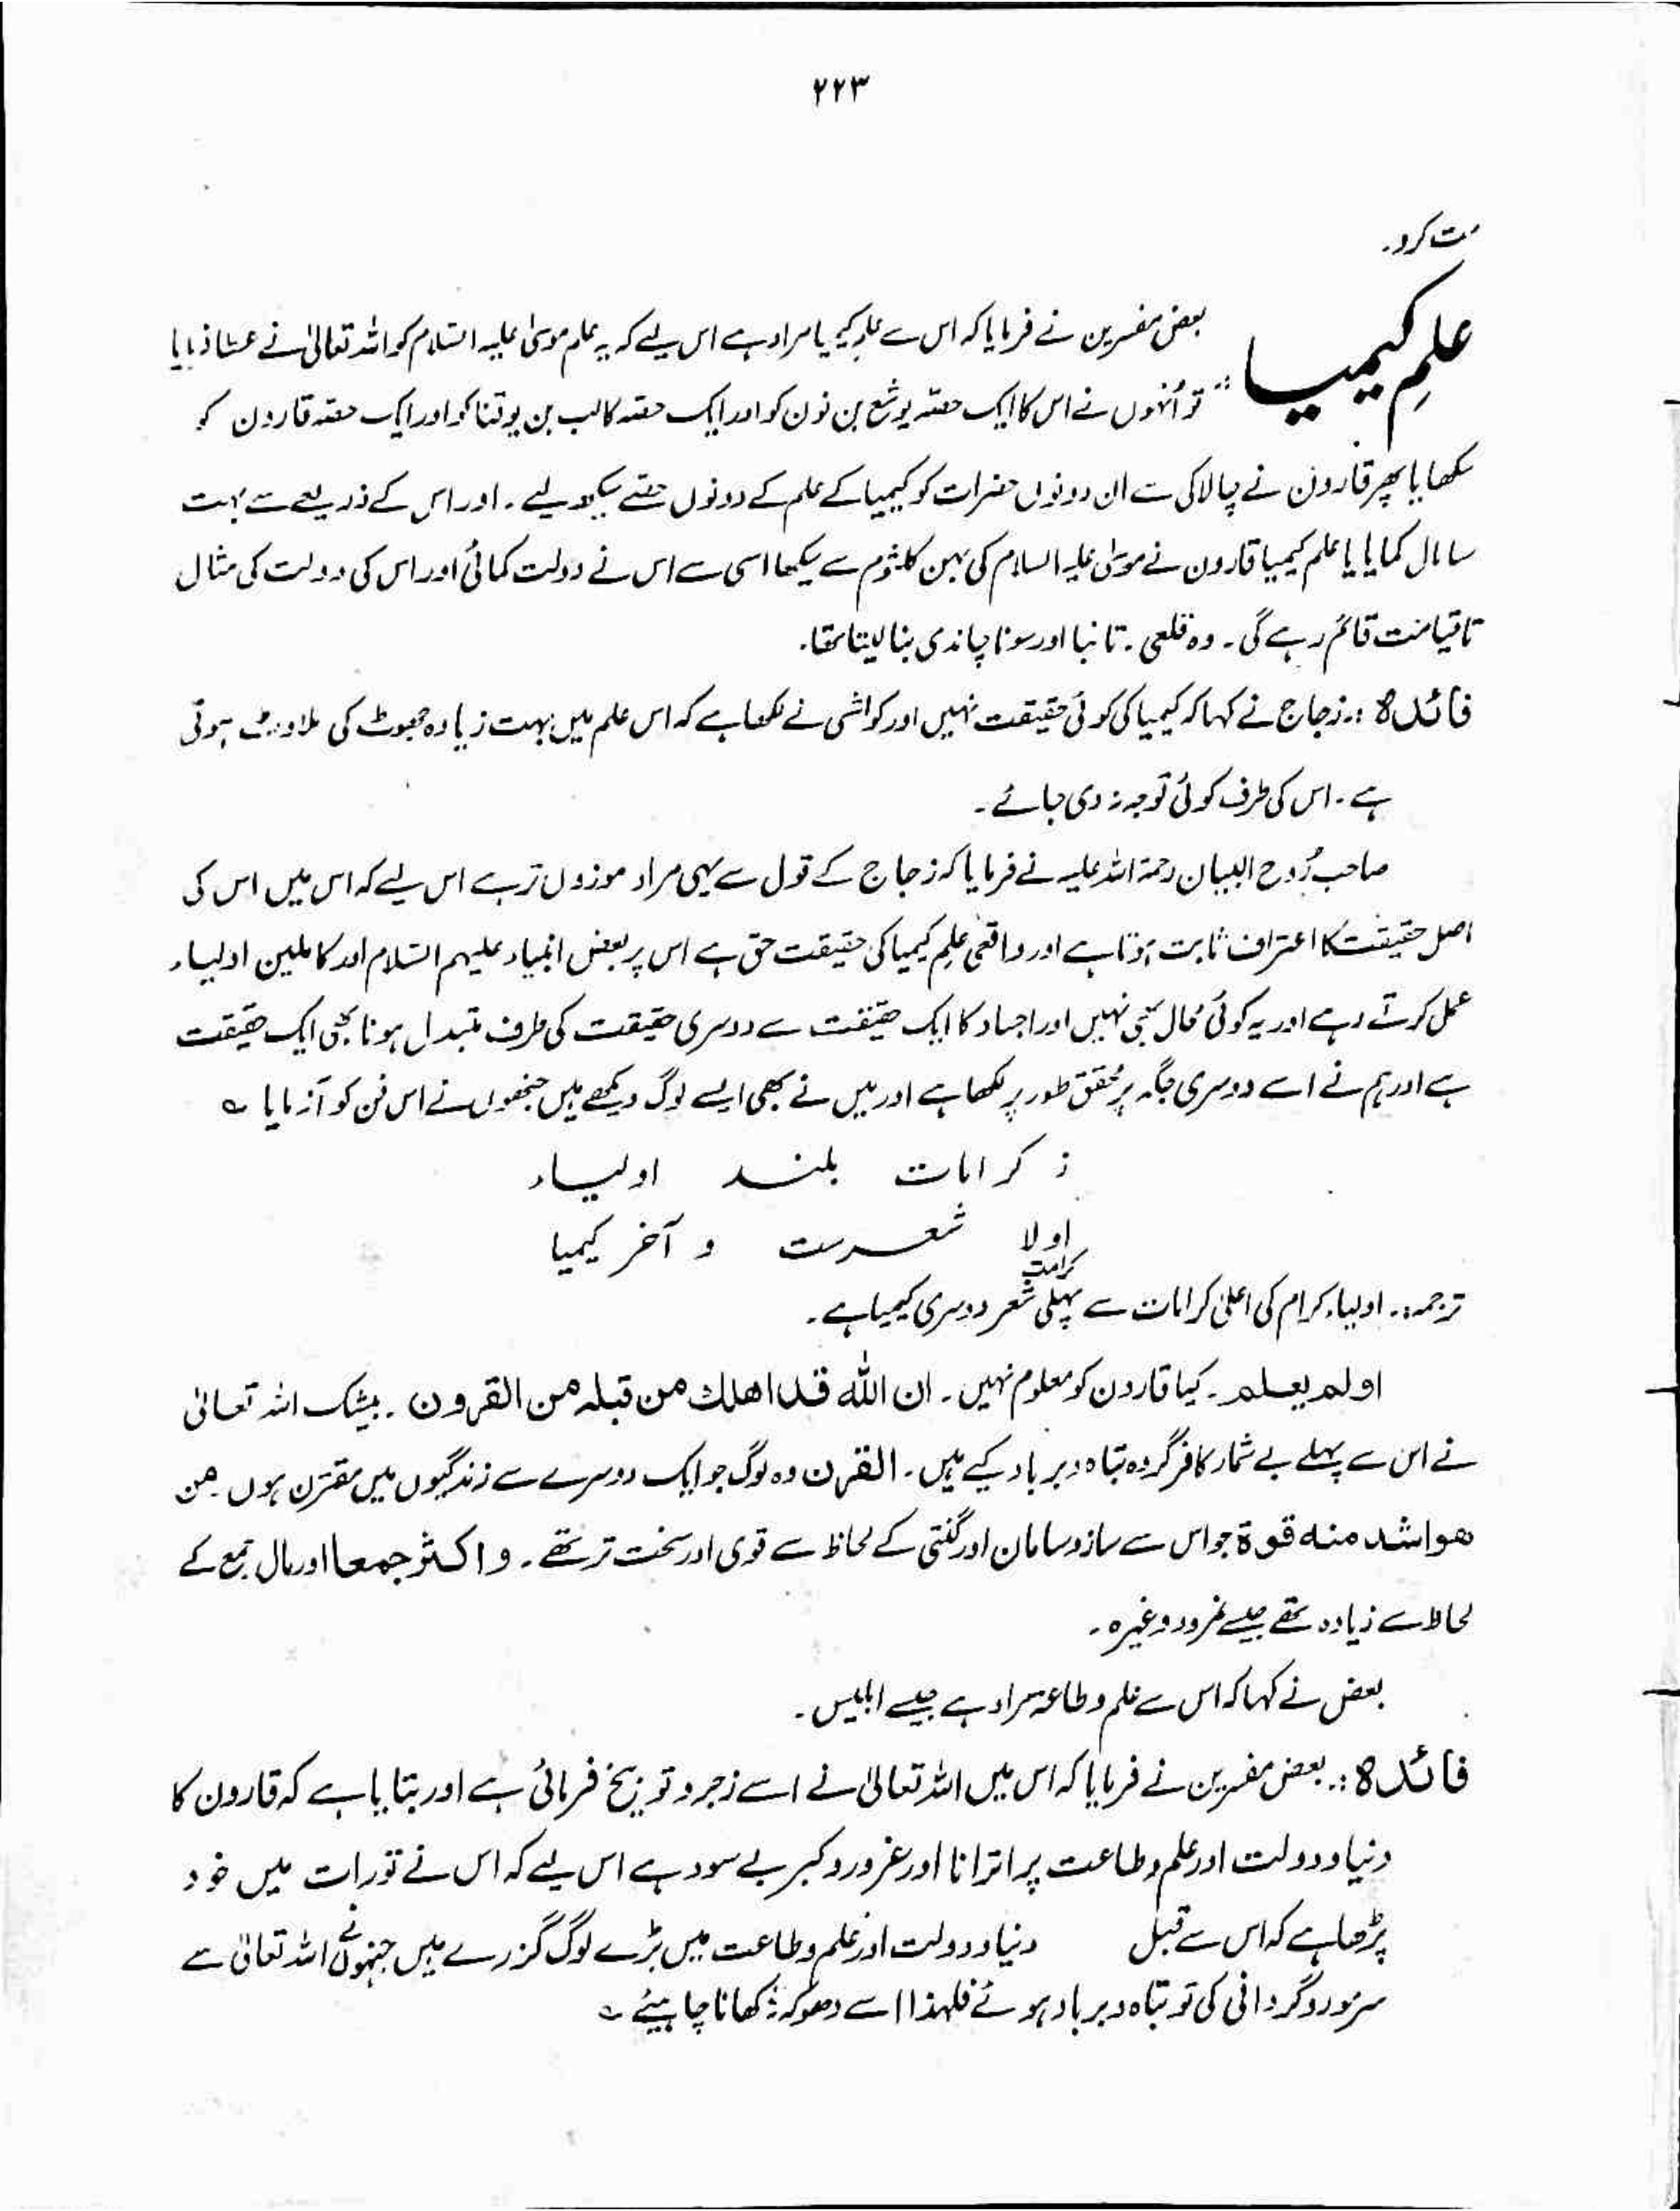 ۲۲۳
مت کرو۔
علمِ کیمیا :- بعض مفسرین نے فرمایا کہ اس سے علم کیمیا مراد ہے اس لیے کہ یہ علم موسیٰ علیہ السّلام کو اللہ تعالیٰ نے عطا فرمایا
تو اُنہوں نے اس کا ایک حصّہ یوشع بن نون کو اور ایک حصّہ کالب بن یوتنا کو اور ایک حصّہ قارون کو
سکھایا پھر قارون نے چالاکی سے ان دونوں حضرات کو کیمیا کے علم کے دونوں حصّے سیکھ لیے۔ اور اس کے ذریعے سے بہت
سا مال کمایا یا علم کیمیا قارون نے موسیٰ علیہ السلام کی بہن کلثوم سے سیکھا اسی سے اس نے دولت کمائی اور اس کی دولت کی مثال
تاقیامت قائم رہے گی۔ وہ قلعی۔ تانبا اور سونا چاندی بنا لیتا تھا۔
فائدہ :۔ زجاج نے کہا کہ کیمیا کی کوئی حقیقت نہیں اور کواشی نے لکھا ہے کہ اس علم میں بہت زیادہ جھوٹ کی ملاوٹ ہوتی
ہے۔ اس کی طرف کوئی توجہ نہ دی جائے۔
صاحب رُوح البیان رحمۃ اللہ علیہ نے فرمایا کہ زجاج کے قول سے یہی مراد موزوں تر ہے اس لیے کہ اس میں اس کی
اصل حقیقت کا اعتراف ثابت ہوتا ہے اور واقعی علمِ کیمیا کی حقیقت حق ہے اس پر بعض انبیاء علیہم السّلام اور کاملین اولیاء
عمل کرتے رہے اور یہ کوئی محال بھی نہیں اور اجساد کا ایک حقیقت سے دوسری حقیقت کی طرف متبدل ہونا بھی ایک حقیقت
ہے اور ہم نے اسے دوسری جگہ پر مُحقق طور پر لکھا ہے اور میں نے بھی ایسے لوگ دیکھے ہیں جنھوں نے اس فن کو آزمایا ؎
ز کرامات بلند اولیاء
اولا شعرست و آخر کیمیا
ترجمہ:۔ اولیاء کرام کی اعلیٰ کرامات سے پہلی کرامت شعر دوسری کیمیا ہے۔
اولم یعلم۔ کیا قارون کو معلوم نہیں۔ ان اللّٰہ قد اھلك من قبلہ من القرون۔ بیشک اللہ تعالیٰ
نے اس سے پہلے بے شمار کافر گروہ تباہ و برباد کیے ہیں۔ القرن وہ لوگ جو ایک دوسرے سے زندگیوں میں مقترن ہوں۔ من
ھو اشد منہ قوۃ جو اس سے ساز و سامان اور گنتی کے لحاظ سے قوی اور سخت تر تھے۔ و اکثر جمعا اور مال جمع کے
لحاظ سے زیادہ تھے جیسے نمرود وغیرہ۔
بعض نے کہا کہ اس سے علم و طاعۃ مراد ہے جیسے ابلیس۔
فائدہ :۔ بعض مفسرین نے فرمایا کہ اس میں اللہ تعالیٰ نے اسے زجر و توبیخ فرمائی ہے اور بتایا ہے کہ قارون کا
دنیا و دولت اور علم و طاعت پر اترانا اور غرور و کبر بے سود ہے اس لیے کہ اس نے تورات میں خود
پڑھا ہے کہ اس سے قبل دنیا و دولت اور علم و طاعت میں بڑے لوگ گزرے ہیں جنہوں نے اللہ تعالیٰ سے
سر مو روگردانی کی تو تباہ و برباد ہوئے فلہٰذا اسے دھوکہ نہ کھانا چاہیئے ؎